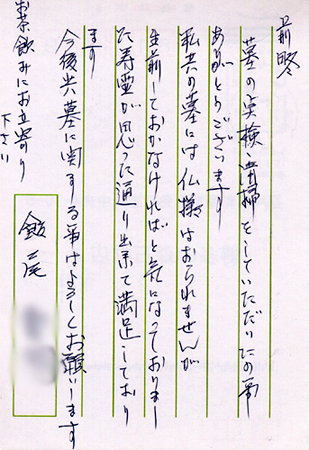 前略
墓の実検、清掃をしていただいたの事
ありがとうございます
私共の墓には仏様はおられませんが
生前しておかなければと気になっておりまし
た寿墓が思った通り出来て満足しており
ます
今後共墓に関する事はよろしくお願いします
お茶飲みにお立寄り
下さい
飯尾